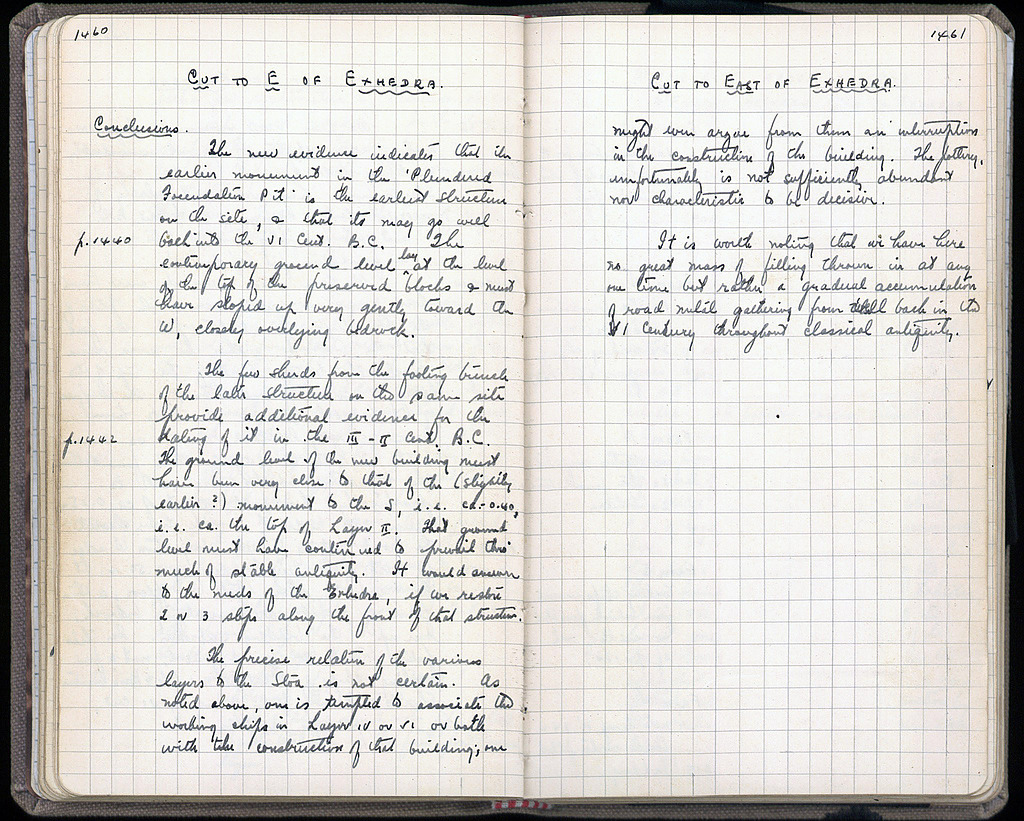 1460
CUT TO E OF EXHEDRA.
Conclusions.
The new evidence indicates that the
earlier monument in the 'Plundered
Foundation Pit' is the earliest structure
on the site, & that its may go well
p.1440 back into the VI Cent. B.C. The
contemporary ground level lay at the level
of the top of the preserved blocks & must
have sloped up very gently toward the
W, closely overlying bedrock.
The few sherds from the footing trench
of the later structure on the same site
provide additional evidence for the
p.1442 dating of it in the III - II Cent. B.C.
The ground level of the new building must
have been very close to that of the (slightly
earlier ?) monument to the S, i.e. ca. -0.40,
i.e. ca. the top of Layer II. That ground
level must have continued to prevail thro'
much of stable antiquity. It would answer
to the needs of the Exhedra, if we restore
2 or 3 steps along the front of that structure.
The precise relation of the various
layers to the Stoa is not certain. As
noted above, one is tempted to associate the
working chips in Layer IV or VI or both
with the construction of that building; one
1461
CUT TO EAST OF EXHEDRA.
might even argue from them an interruption
in the construction of the building. The pottery,
unfortunately is not sufficiently abundant
nor characteristic to be decisive.
It is worth noting that we have here
no great mass of filling thrown in at any
one time but rather a gradual accumulation
of road metal gathering from well back in the
VI Century throughout classical antiquity.